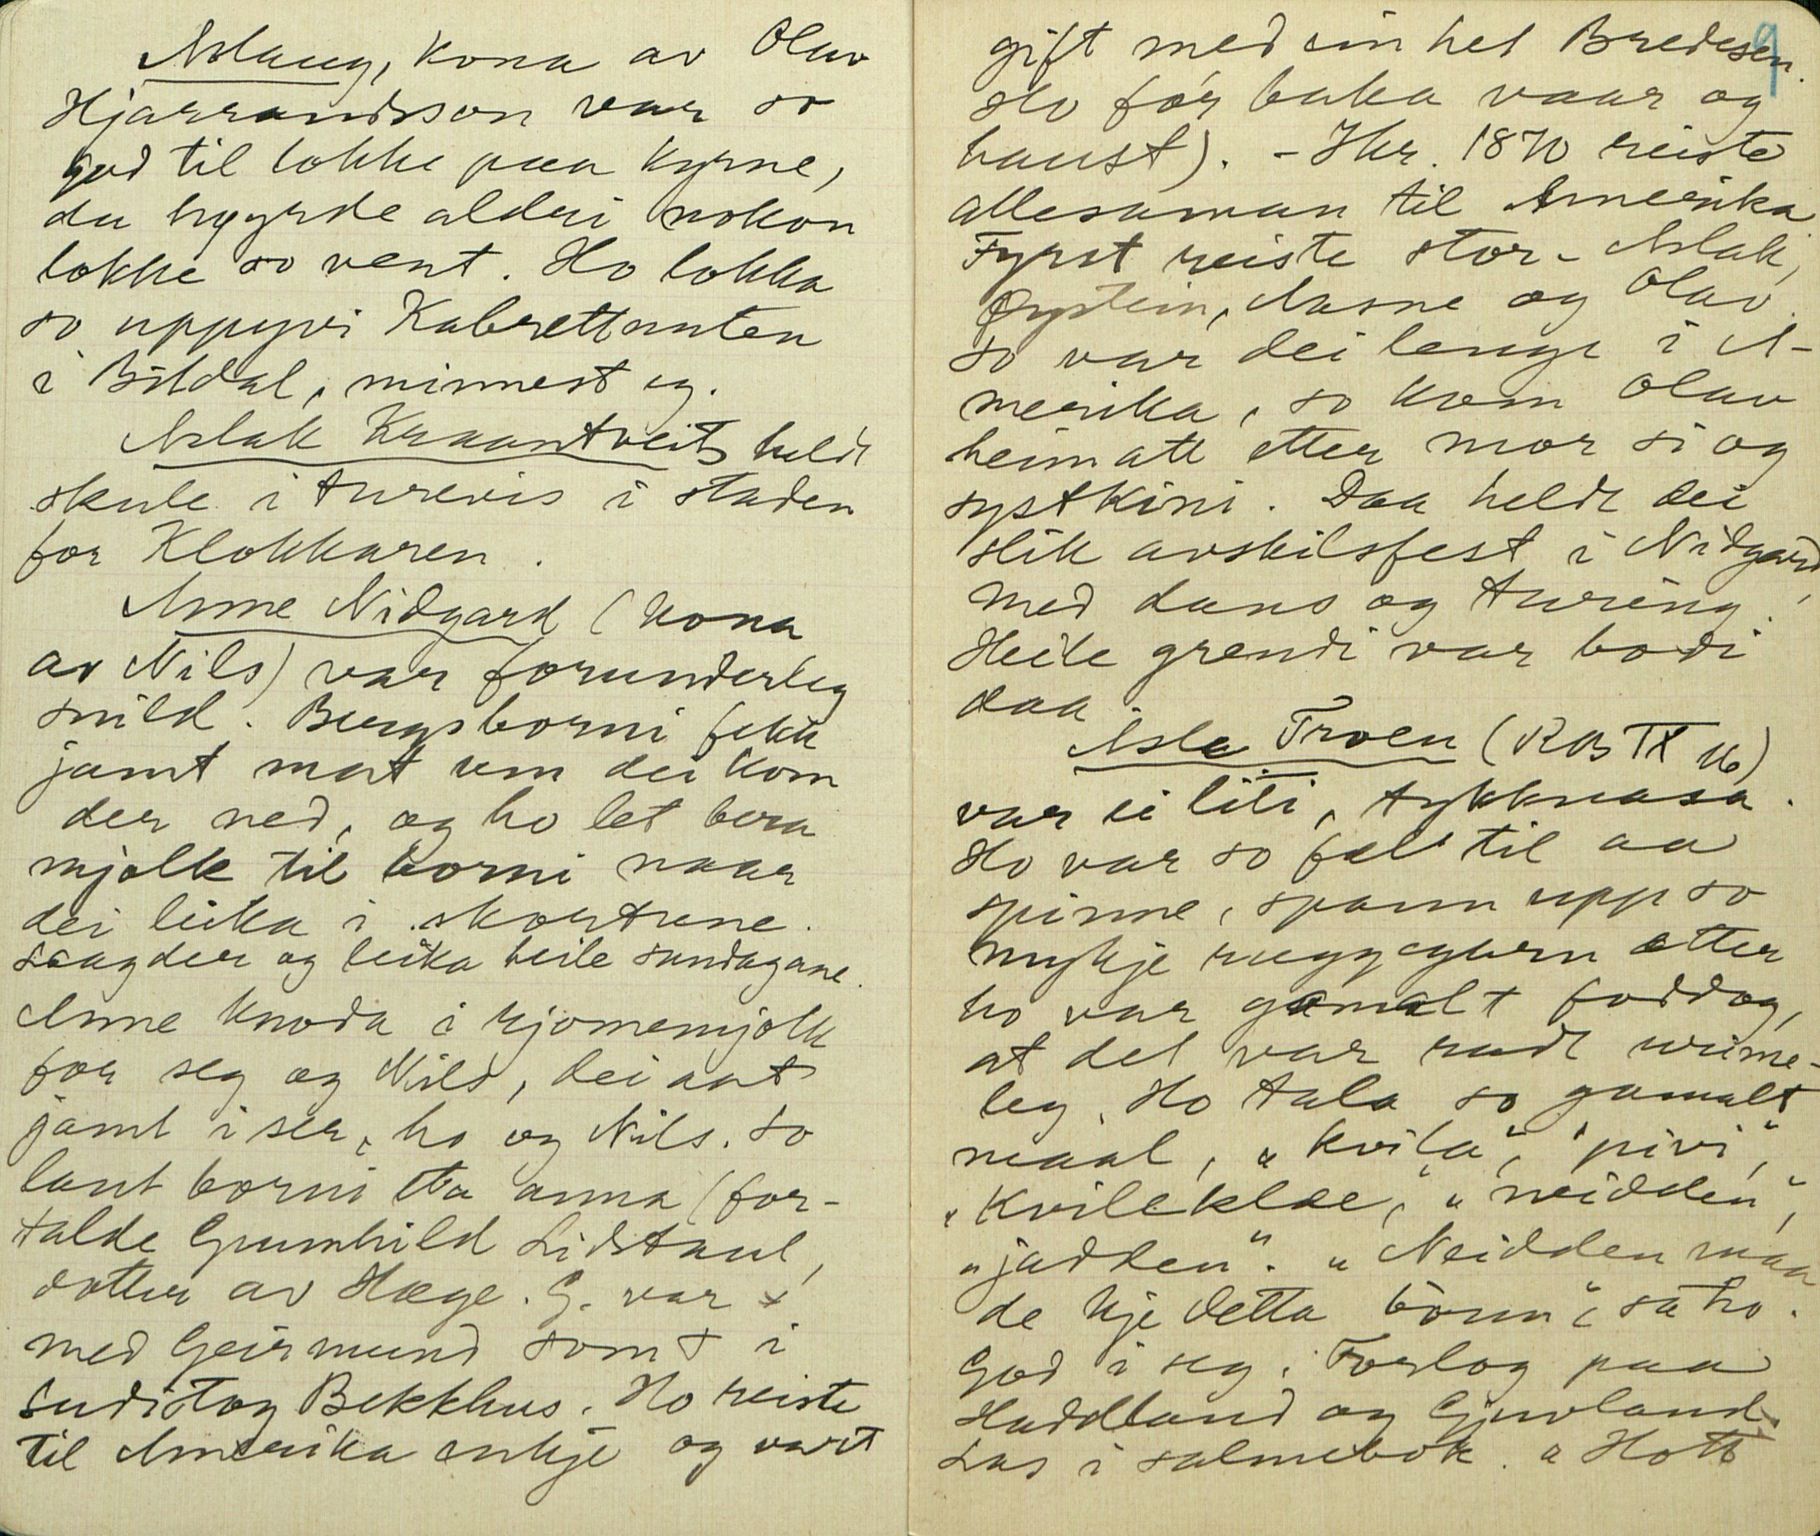 Aslaug, kona av Olav
Hjarrandsson var so
god til lokke paa kyrne,
du høyrde aldri nokon
lokke so vent. Ho lokka
so uppyvi Kabrettnuten
i Bitdal, minnest eg.
Aslak Kraantveit heldt
skule i turevis i staden
for Klokkaren.
Anne Nidgard (kona
av Nils) var forunderleg
snild. Bergsborni fekk
jamt mat um dei kom
der ned, og ho let bera
mjølk til borni naar
dei leika i skortune.
Laagder og leika heile sundagane.
Anne knoda i rjomemjølk
for seg og Nils, dei aat
jamt i ser, ho og Nils. So
laut borni eta anna (for-
talde Gunnhild Lidstaul,
dotter av Hæge. G. var x
med Geirmund somt i
Sudistog Bekkhus. Ho reiste
til Amerika enkje og vart
gift med ein het Bredesen.
9
Ho fór baka vaar og
haust). - Ikr. 1870 reiste
allesaman til Amerika
Fyrst reiste stor-Aslak,
Øystein, Aasne og Olav.
so var dei lenge i A-
merika, so kom Olav
heimatt etter mor si og
systkini. Daa heldt dei
slik avskilsfest i Nidgard
med dans og turing.
Heile grendi var bodi
daa.
Asle Troen (RB IX 16)
var ei liti, tykknasa.
Ho var so fæl til aa
spinne, spann upp so
mykje ruggegarn etter
ho var gamalt foddog,
at det var radt urime-
leg. Ho tala so gamalt
maal, "kvila", "pivi",
"kvileklæe", "neidden",
"jadden". "Neidden maa
de kje detta bonn", sa ho.
God i seg. Forlog paa
Haddland og Gjuvland.
Las i salmebok. "Hott